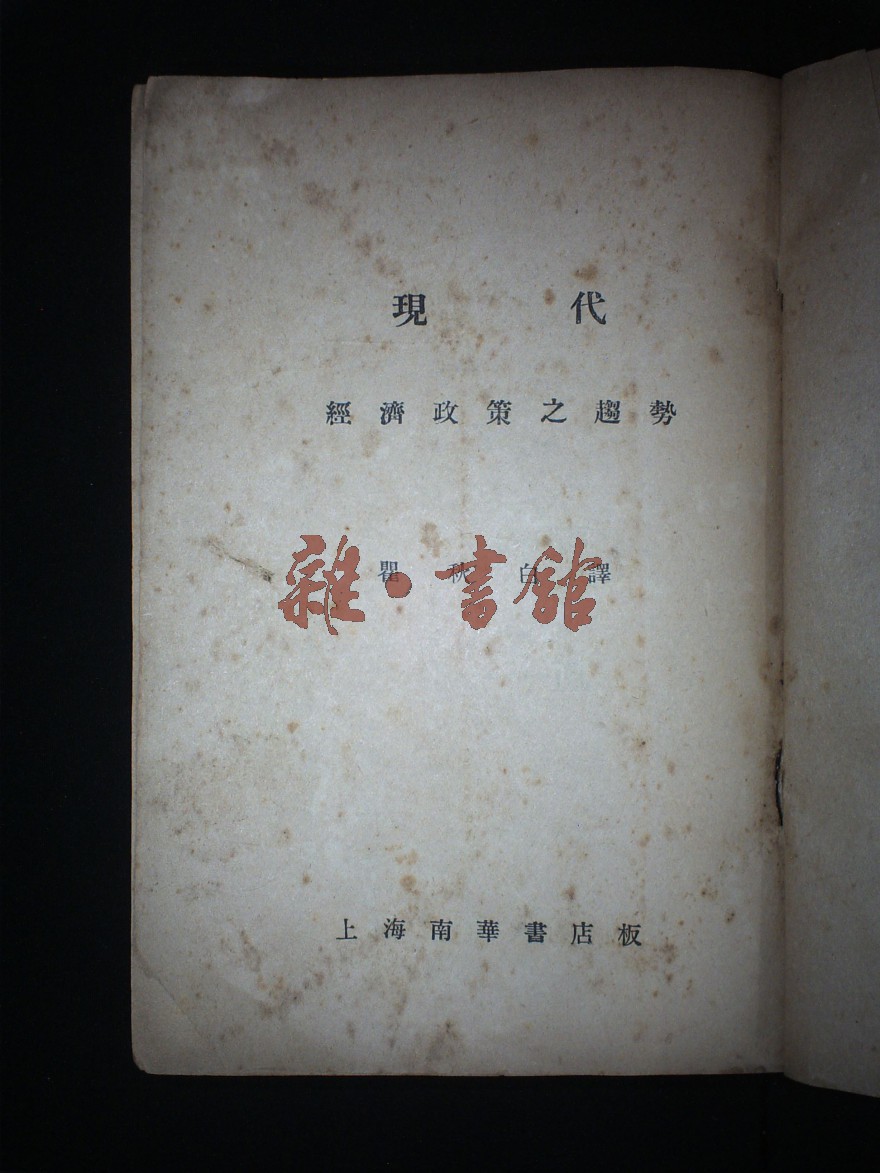 現代
經濟政策之趨勢
瞿秋白譯
雜·書館
上海南華書店板